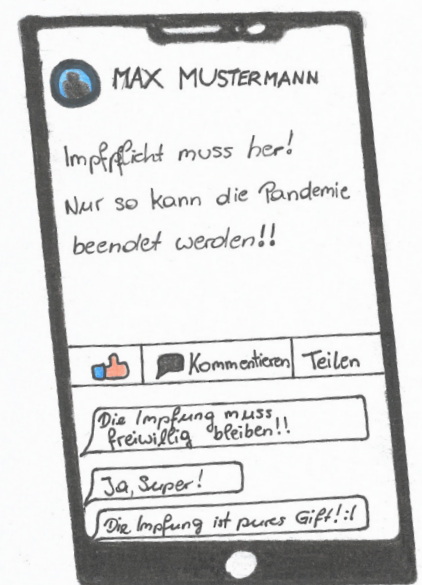 MAX MUSTERMANN
Impfpflicht muss her!
Nur so kann die Pandemie
beendet werden!!
Kommentieren
Teilen
Die Impfung muss
freiwillig bleiben!!
Ja, Super!
Die Impfung ist pures Gift!:(